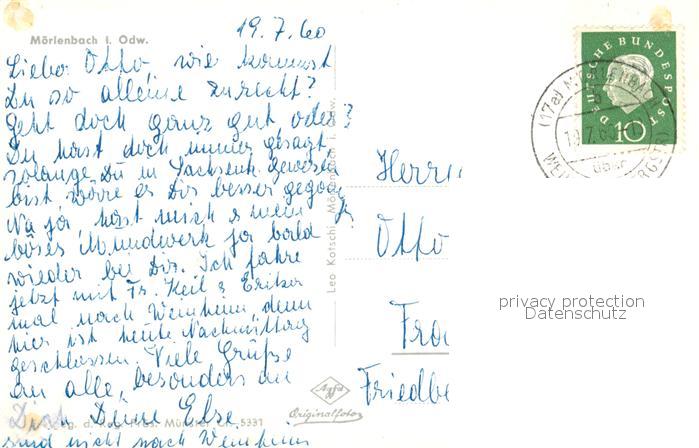 19.7.60
Mörlenbach i. Odw.
Lieber Otto, wie kommst
Du so alleine zurecht?
Geht doch ganz gut oder?
Du hast doch immer gesagt
solange Du in Sachsenh. gewesen
bist wäre es Dir besser gegang
Na ja, hast mich & mein
böses Mundwerk ja bald
wieder bei Dir. Ich fahre
jetzt mit Fr. Keil & Erika
mal nach Weinheim, denn
hier ist heute Nachmittag
geschlossen. Viele Grüße
an alle, besonders an
Dich Deine Else
sind nicht nach Weinheim
Leo Katschi, Mörlenbach i. Odw.
g. d. Reg. Präs. Münster CK 5331
Agfa
Originalfoto
DEUTSCHE BUNDESPOST
10
(17a)
19.7.60
über
Herrn
Otto
Fra
Friedbe
privacy protection
Datenschutz